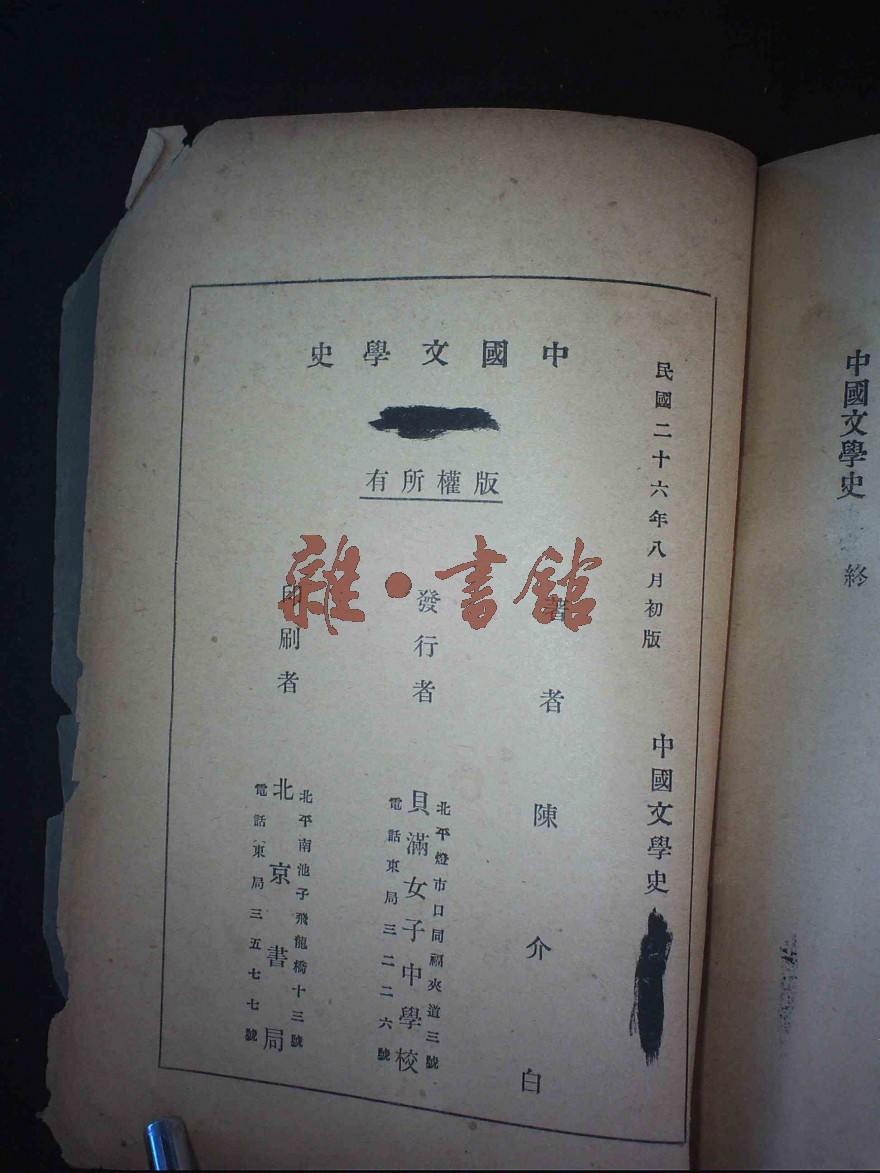 中國文學史
終
民國二十六年八月初版
中國文學史
中國文學史
版權所有
著者 陳介白
發行者
北平燈市口同福夾道三號
貝滿女子中學校
電話東局三二二六號
印刷者
北平南池子飛龍橋十三號
北京書局
電話東局三五七七號
雜·書館